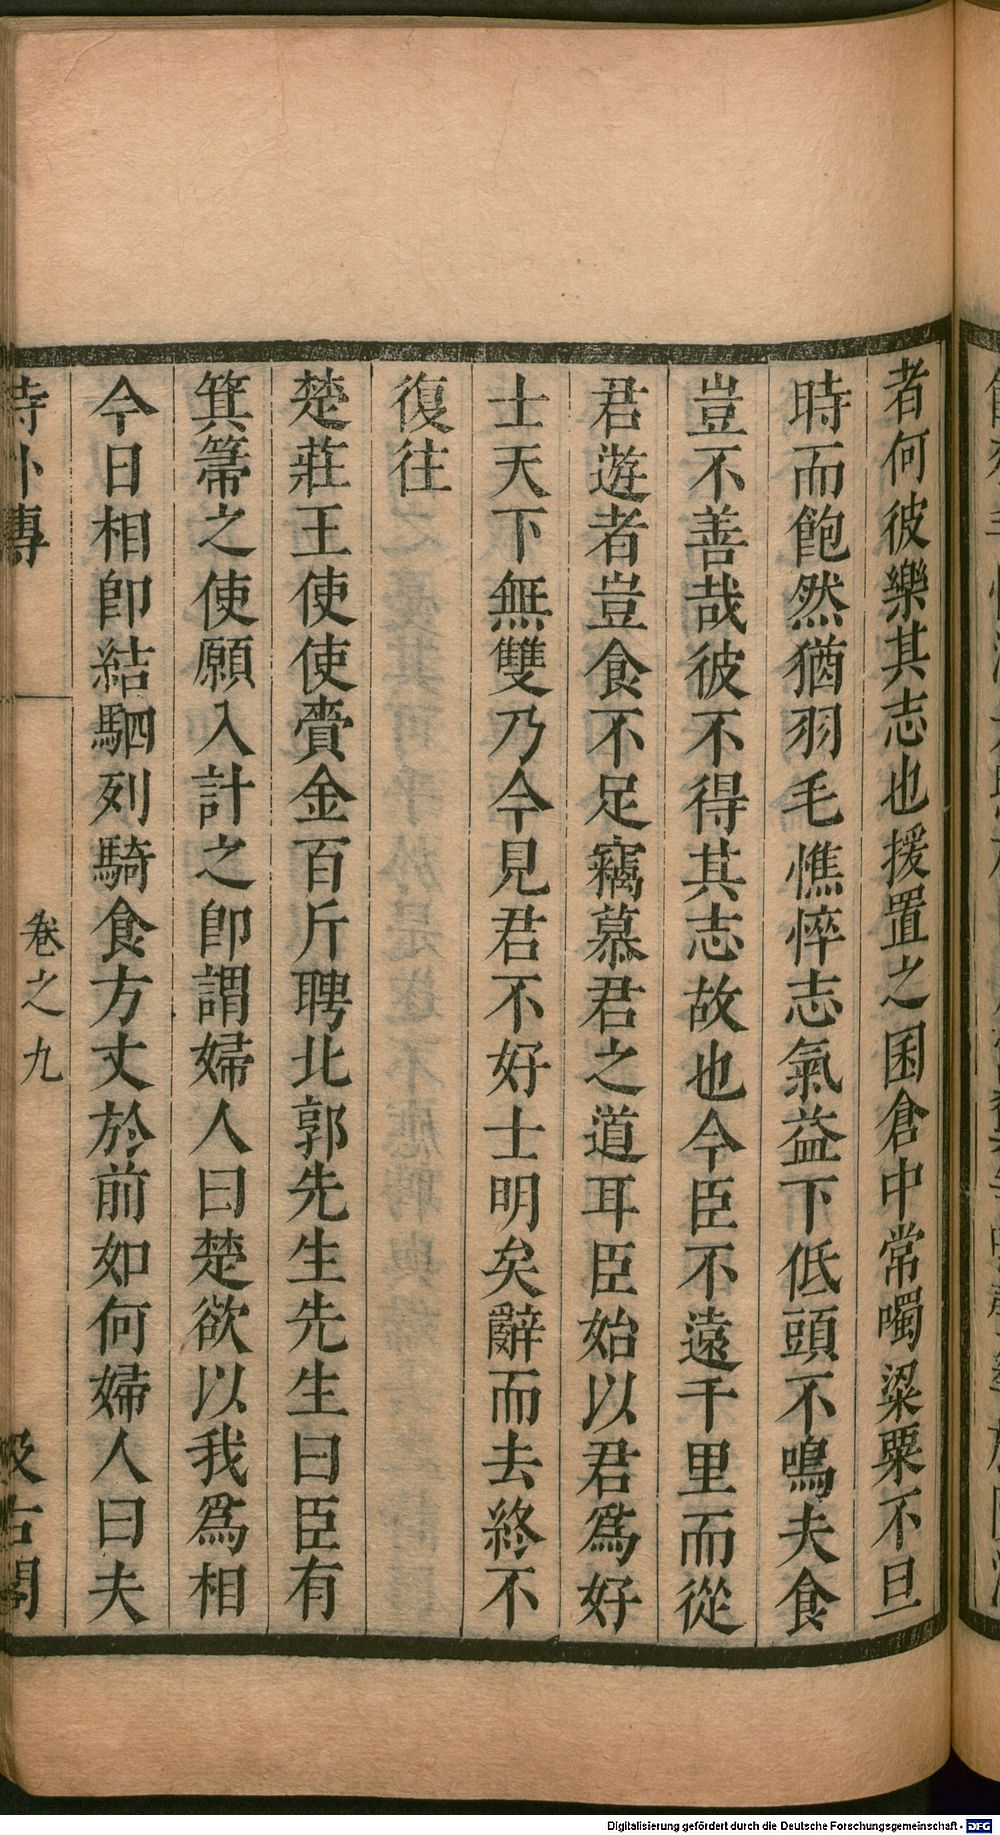 者何彼樂其志也援置之囷倉中常噣粱粟不旦
時而飽然猶羽毛憔悴志氣益下低頭不鳴夫食
豈不善哉彼不得其志故也今臣不遠千里而從
君遊者豈食不足竊慕君之道耳臣始以君爲好
士天下無雙乃今見君不好士明矣辭而去終不
復往
楚莊王使使賷金百斤聘北郭先生先生曰臣有
箕箒之使願入計之卽謂婦人曰楚欲以我爲相
今日相卽結駟列騎食方丈於前如何婦人曰夫
詩外傳
卷之九
汲古閣
Digitalisierung gefördert durch die Deutsche Forschungsgemeinschaft - DFG